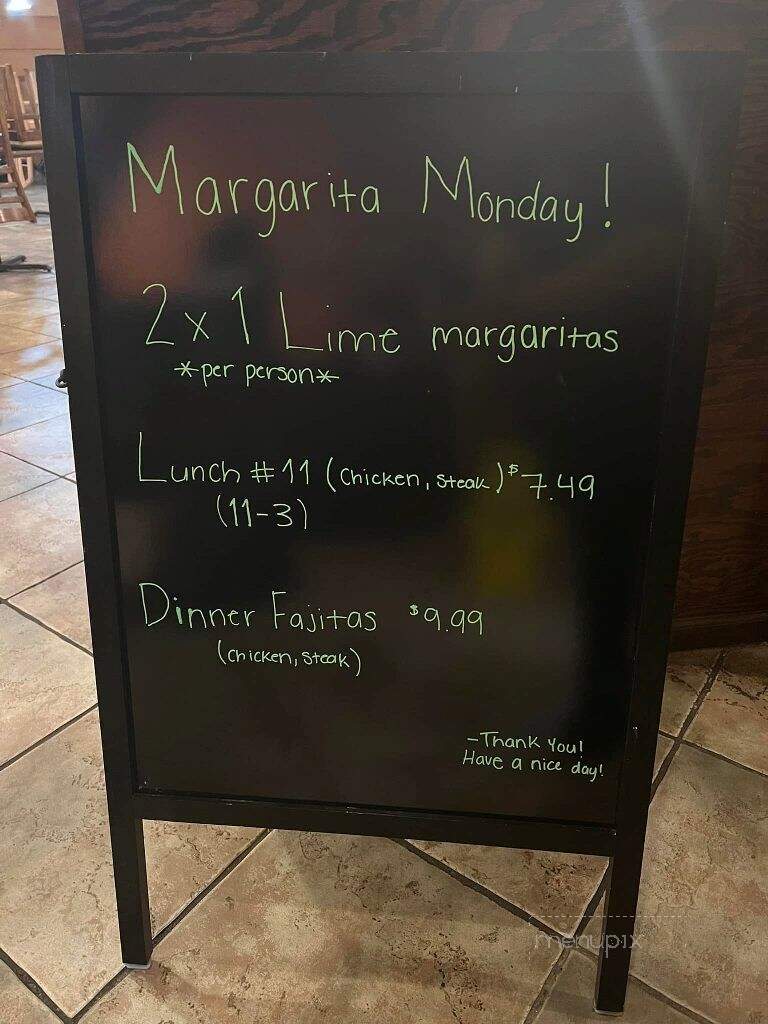 Margarita Monday!
2 x 1 Lime margaritas
*per person*
Lunch #11 (chicken, steak) $7.49
(11-3)
Dinner Fajitas $9.99
(chicken, steak)
-Thank you!
Have a nice day!
menupix